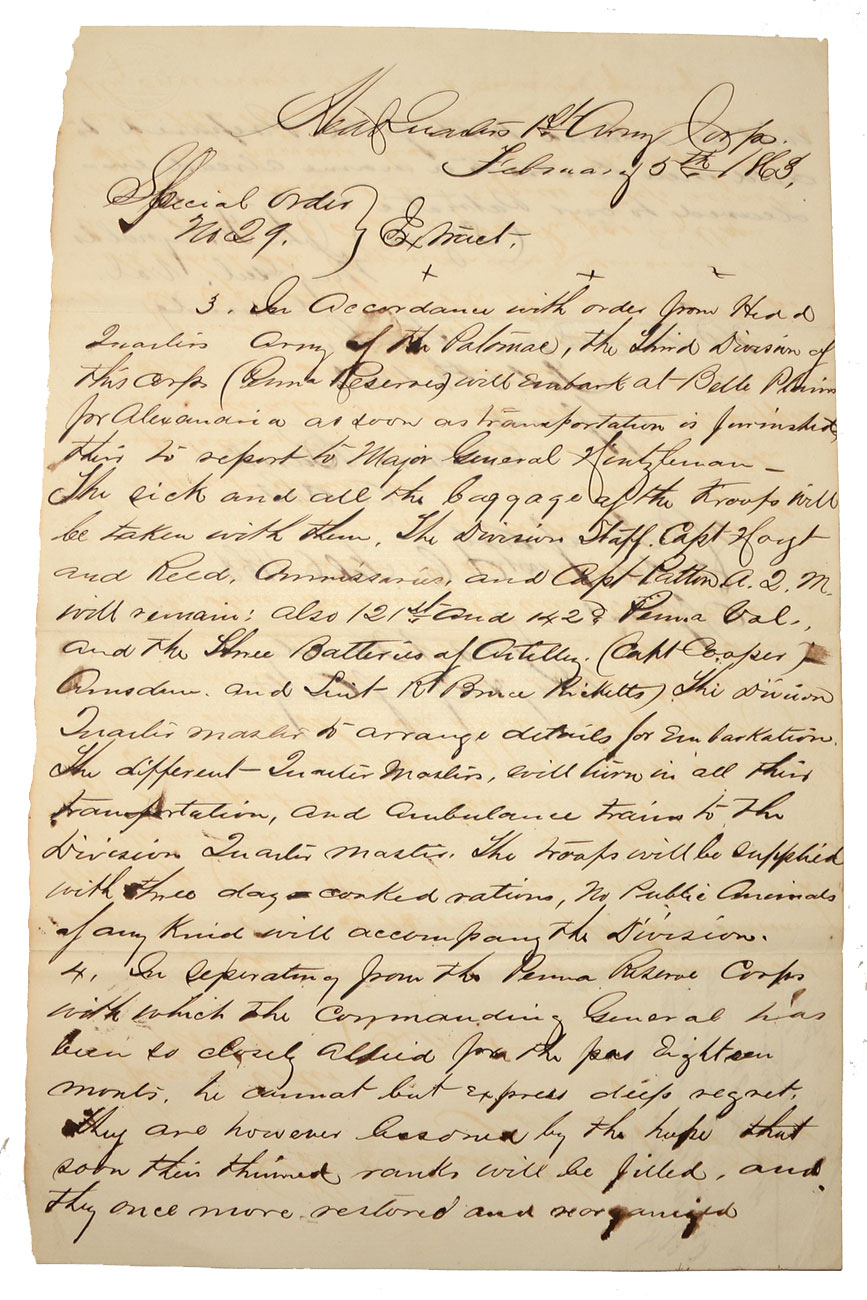 Head Quarters 1st Army Corps.
February 5th 1863,
Special Order
No. 29. } Extract.
3. In Accordance with order from Head
Quarters Army of the Potomac, the Third Division of
this Corps (Penna Reserves) will Embark at Belle Plains
for Alexandria as soon as transportation is furnished,
there to report to Major General Heintzleman –
The sick and all the baggage of the troops will
be taken with them. The Division Staff. Capt Hoyt
and Reed, Commissaries, and Capt Patton A. Q. M.
will remain: also 121st and 142d Penna Vol.,
and the Three Batteries of Artillery. (Capt Cooper)
Amsden. and Lieut R Bruce Ricketts) The Division
Quarter master to arrange details for Embarkation.
The different Quarter Masters, will turn in all their
transportation, and ambulance trains to the
Division Quarter master. The troops will be supplied
with three days cooked rations, No Public Animals
of any Kind will accompany the Division.
4. In seperating from the Penna Reserve Corps
with which the Commanding General has
been so closely Allied for the pas Eighteen
months, he cannot but express deep regret.
They are however lessoned by the hope that
soon their thinned ranks will be filled, and
they once more restored and reorganized